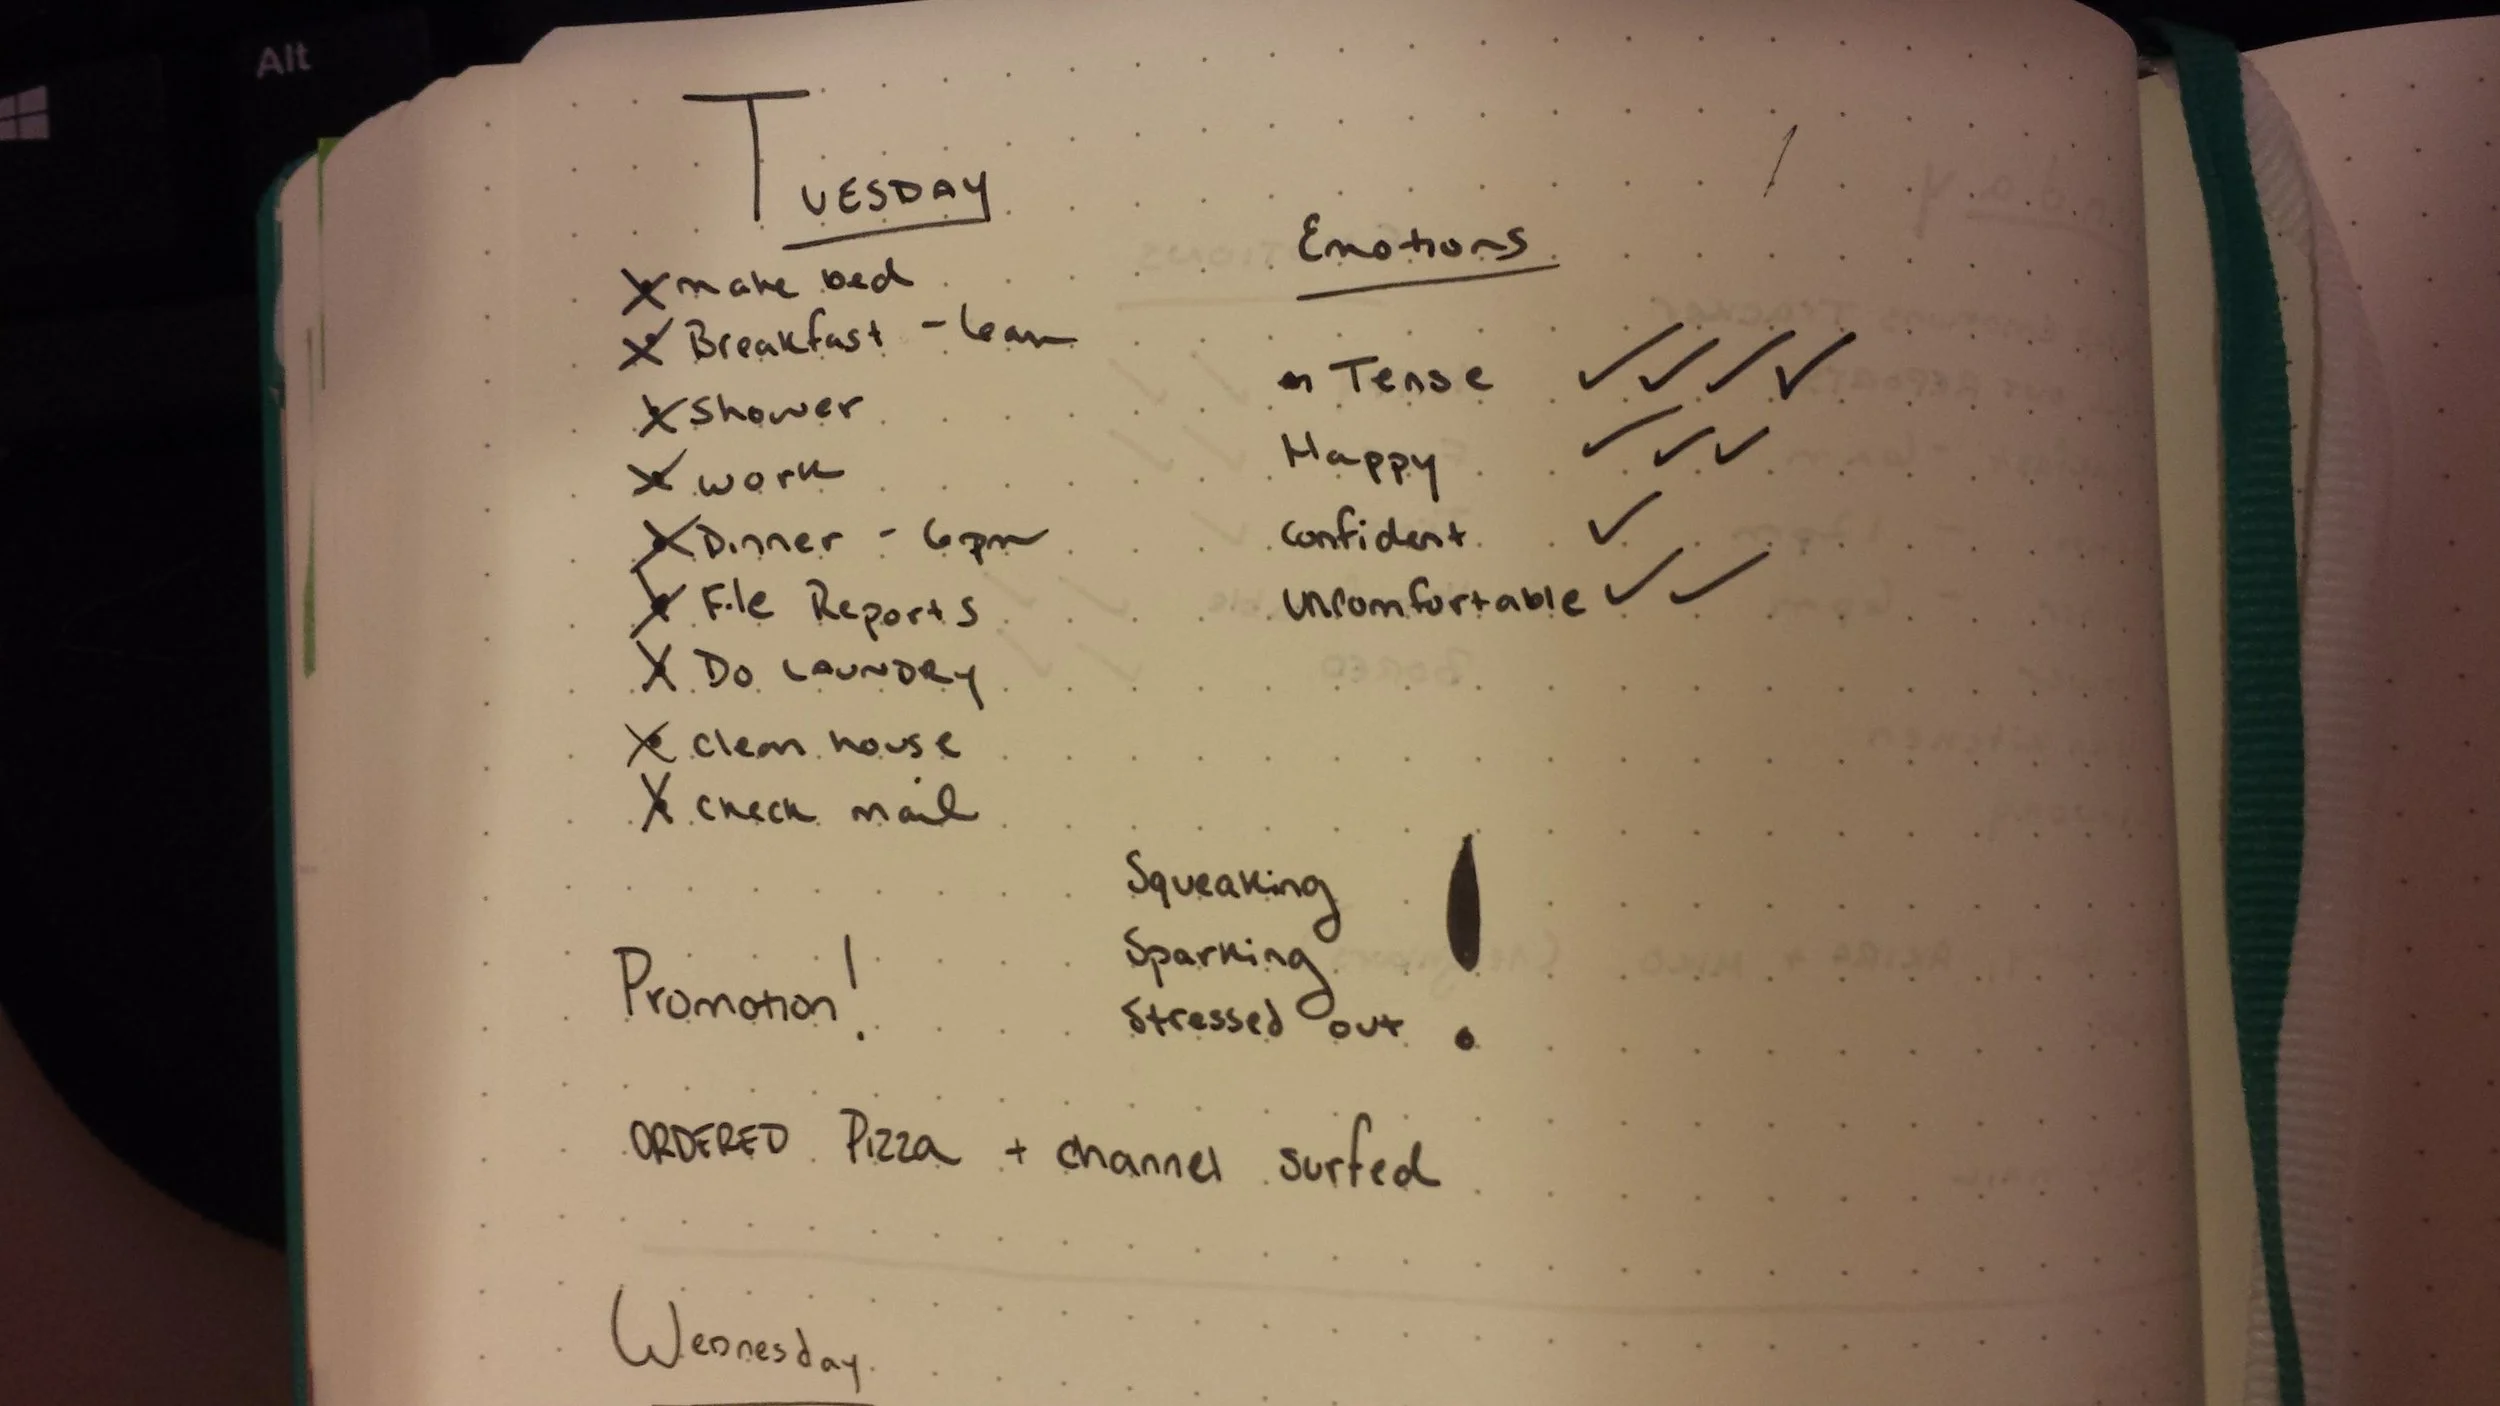 Alt
TUESDAY
X make bed
X Breakfast - 6am
X Shower
X work
X Dinner - 6pm
X File Reports
X Do LAUNDRY
X clean house
X check mail
Emotions
Tense ✓✓✓✓
Happy ✓✓✓
Confident ✓
Uncomfortable ✓✓
Promotion!
Squeaking
Sparking
Stressed out !
ORDERED Pizza + channel surfed
Wednesday